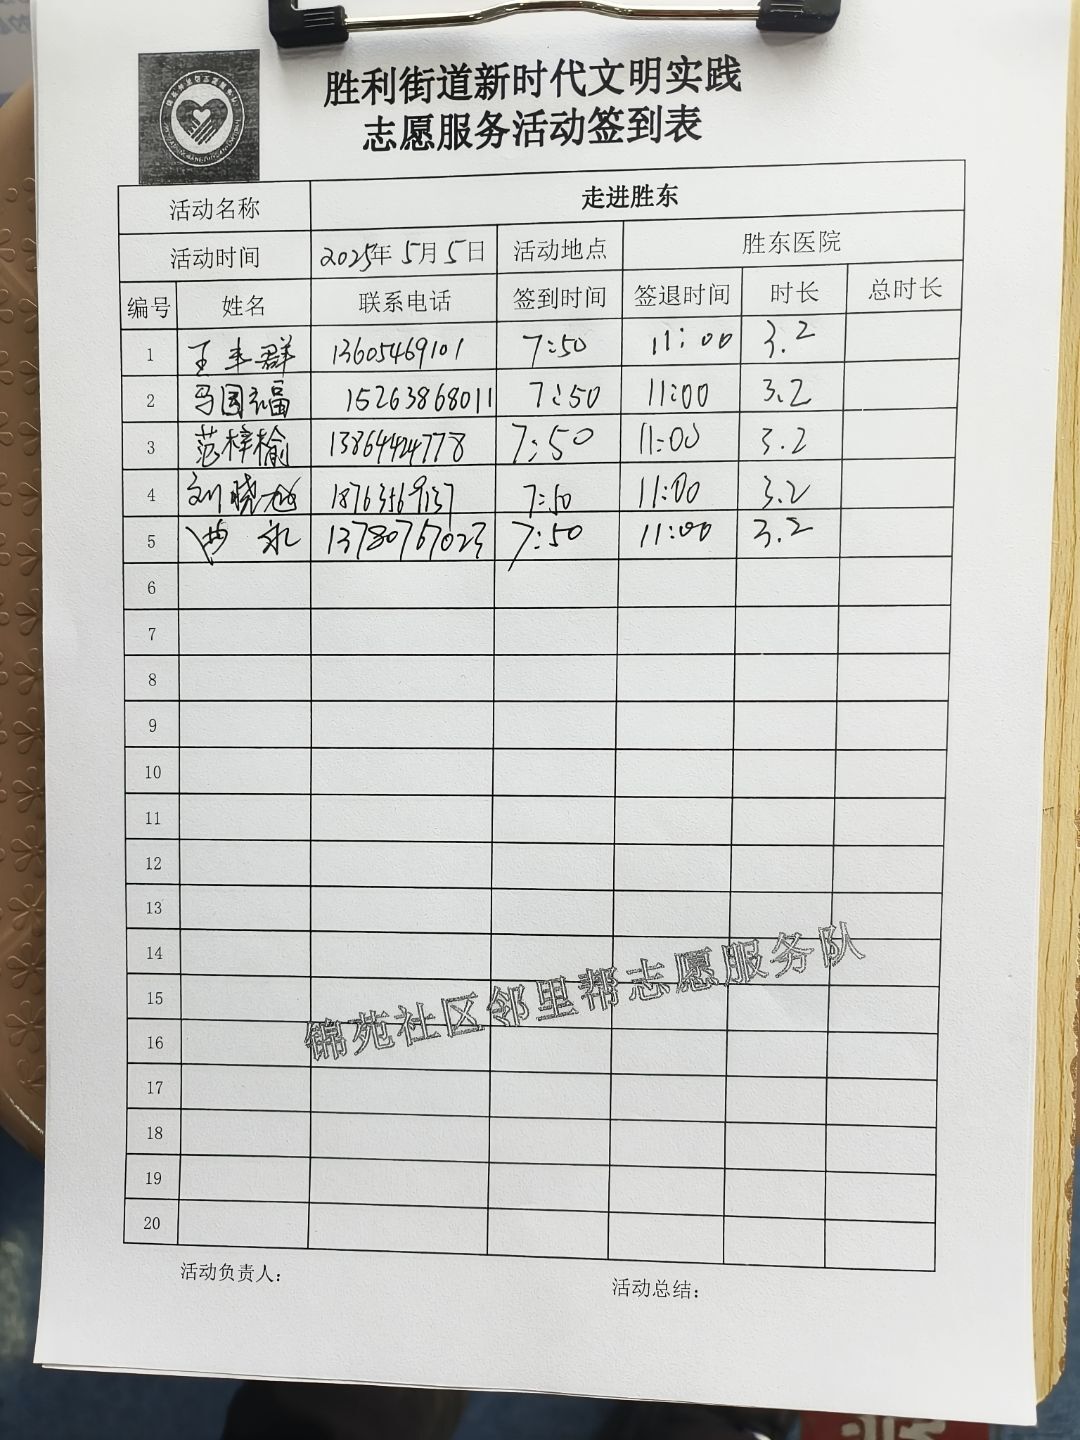 胜利街道新时代文明实践
志愿服务活动签到表
活动名称 走进胜东
活动时间 2025年5月5日 活动地点 胜东医院
编号 姓名 联系电话 签到时间 签退时间 时长 总时长
1 王丰群 13605469101 7:50 11:00 3.2
2 马国福 15263868011 7:50 11:00 3.2
3 范梓榆 13864424778 7:50 11:00 3.2
4 刘晓旭 18763569137 7:50 11:00 3.2
5 13780767023 7:50 11:00 3.2
6
7
8
9
10
11
12
13
14
15
16
17
18
19
20
锦苑社区邻里帮志愿服务队
活动负责人: 活动总结: